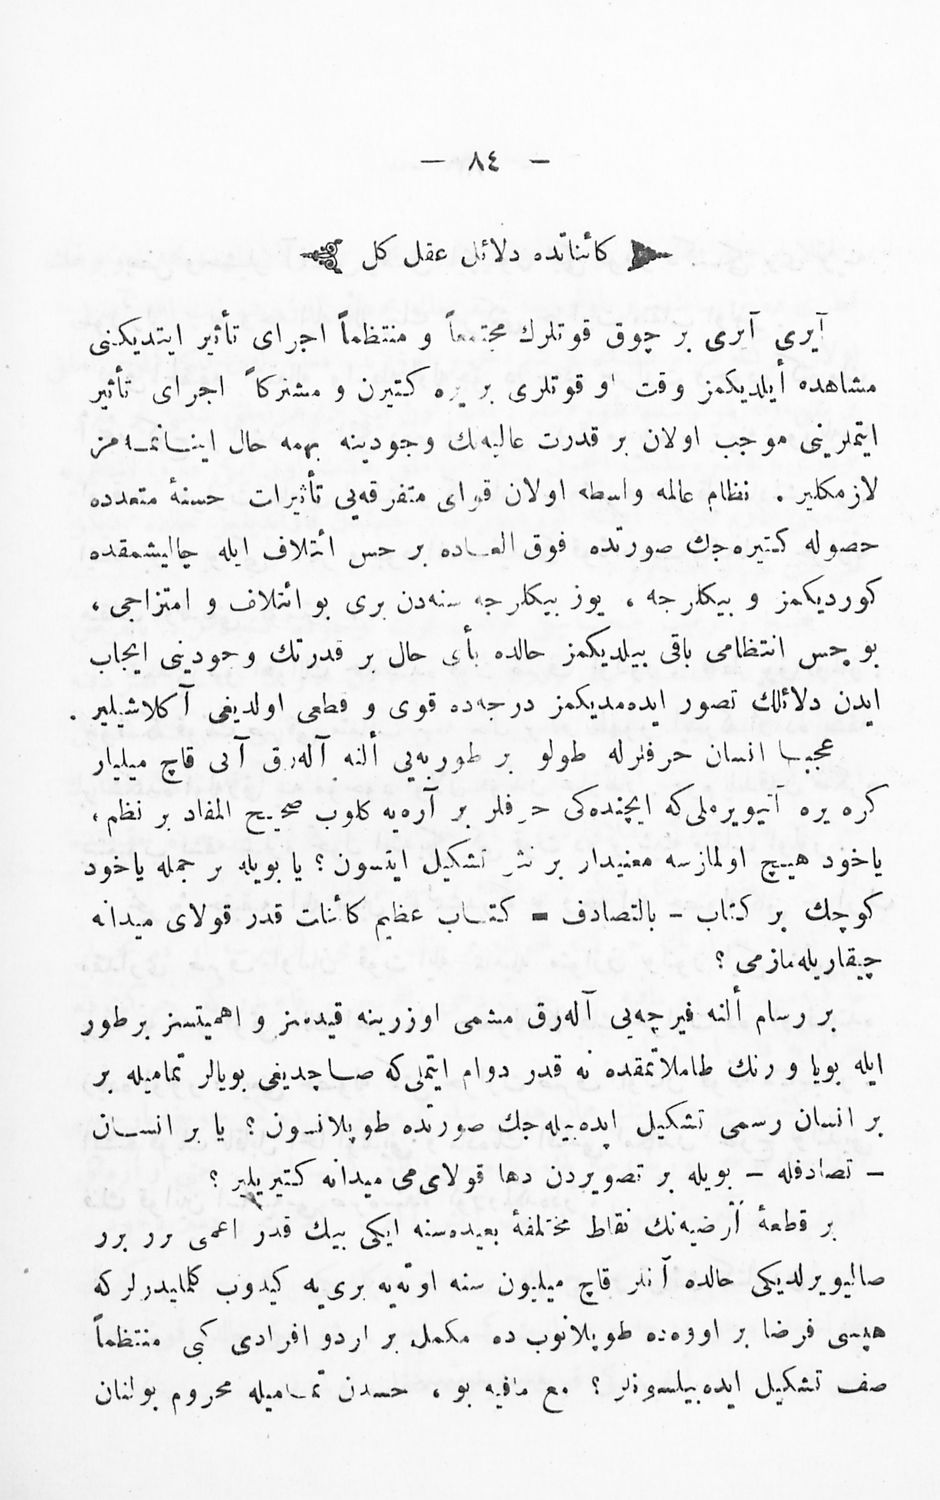 — ٨٤ —
كائناتده دلائل عقل كل
آيرى آيرى بر چوق قوتلرك مجتمعاً و منتظماً اجراى تأثير ايتديكنى
مشاهده أيلديكمز وقت او قوتلرى بر يره كتيرن و مشتركاً اجراى تأثير
ايتملرينى موجب اولان بر قدرت عاليه‌نك وجودينه بهمه حال اينانمه‌مز
لازمكلير . نظام عالمه واسطه اولان قواى متفرقه‌يى تأثيرات حسنۀ متعدده
حصوله كتيره‌جك صورتده فوق العاده بر حس ائتلاف ايله چاليشمقده
كورديكمز و بيكلرجه ، يوز بيكلرجه سنه‌دن برى بو ائتلاف و امتزاجى ،
بو حس انتظامى باقى بيلديكمز حالده بأى حال بر قدرتك وجودينى ايجاب
ايدن دلائلك تصور ايده‌مديكمز درجه‌ده قوى و قطعى اولديغى آكلاشيلير .
عجبا انسان حرفلرله طولو بر طوربه‌يى ألنه آله‌رق آنى قاچ ميليار
كره يره آتيويرملى‌كه ايچنده‌كى حرفلر بر آره‌يه كلوب صحيح المفاد بر نظم ،
ياخود هيچ اولمازسه معنيدار بر نثر تشكيل ايتسون ؟ يا بويله بر جمله ياخود
كوچك بر كتاب – بالتصادف – كتاب عظيم كائنات قدر قولاى ميدانه
چيقاريله‌مازمى ؟
بر رسام ألنه فيرچه‌يى آله‌رق مشمى اوزرينه قيدسز و اهميتسز بر طور
ايله بويا و رنك طاملاتمقده نه قدر دوام ايتملى‌كه صاچديغى بويالر تماميله بر
بر انسان رسمى تشكيل ايده‌بيله‌جك صورتده طوپلانسون ؟ يا بر انسان
– تصادفله – بويله بر تصويردن دها قولاى‌مى ميدانه كتيريلير ؟
بر قطعۀ أرضيه‌نك نقاط مختلفۀ بعيده‌سنه ايكى بيك قدر اعمى برر برر
صاليويرلديكى حالده آنلر قاچ ميليون سنه اوته‌يه برى‌يه كيدوب كلمليدرلر كه
هپسى فرضا بر اووه‌ده طوپلانوب ده مكمل بر اردو افرادى كبى منتظماً
صف تشكيل ايده‌بيلسونلر ؟ مع مافيه بو ، حسدن تماميله محروم بولنان